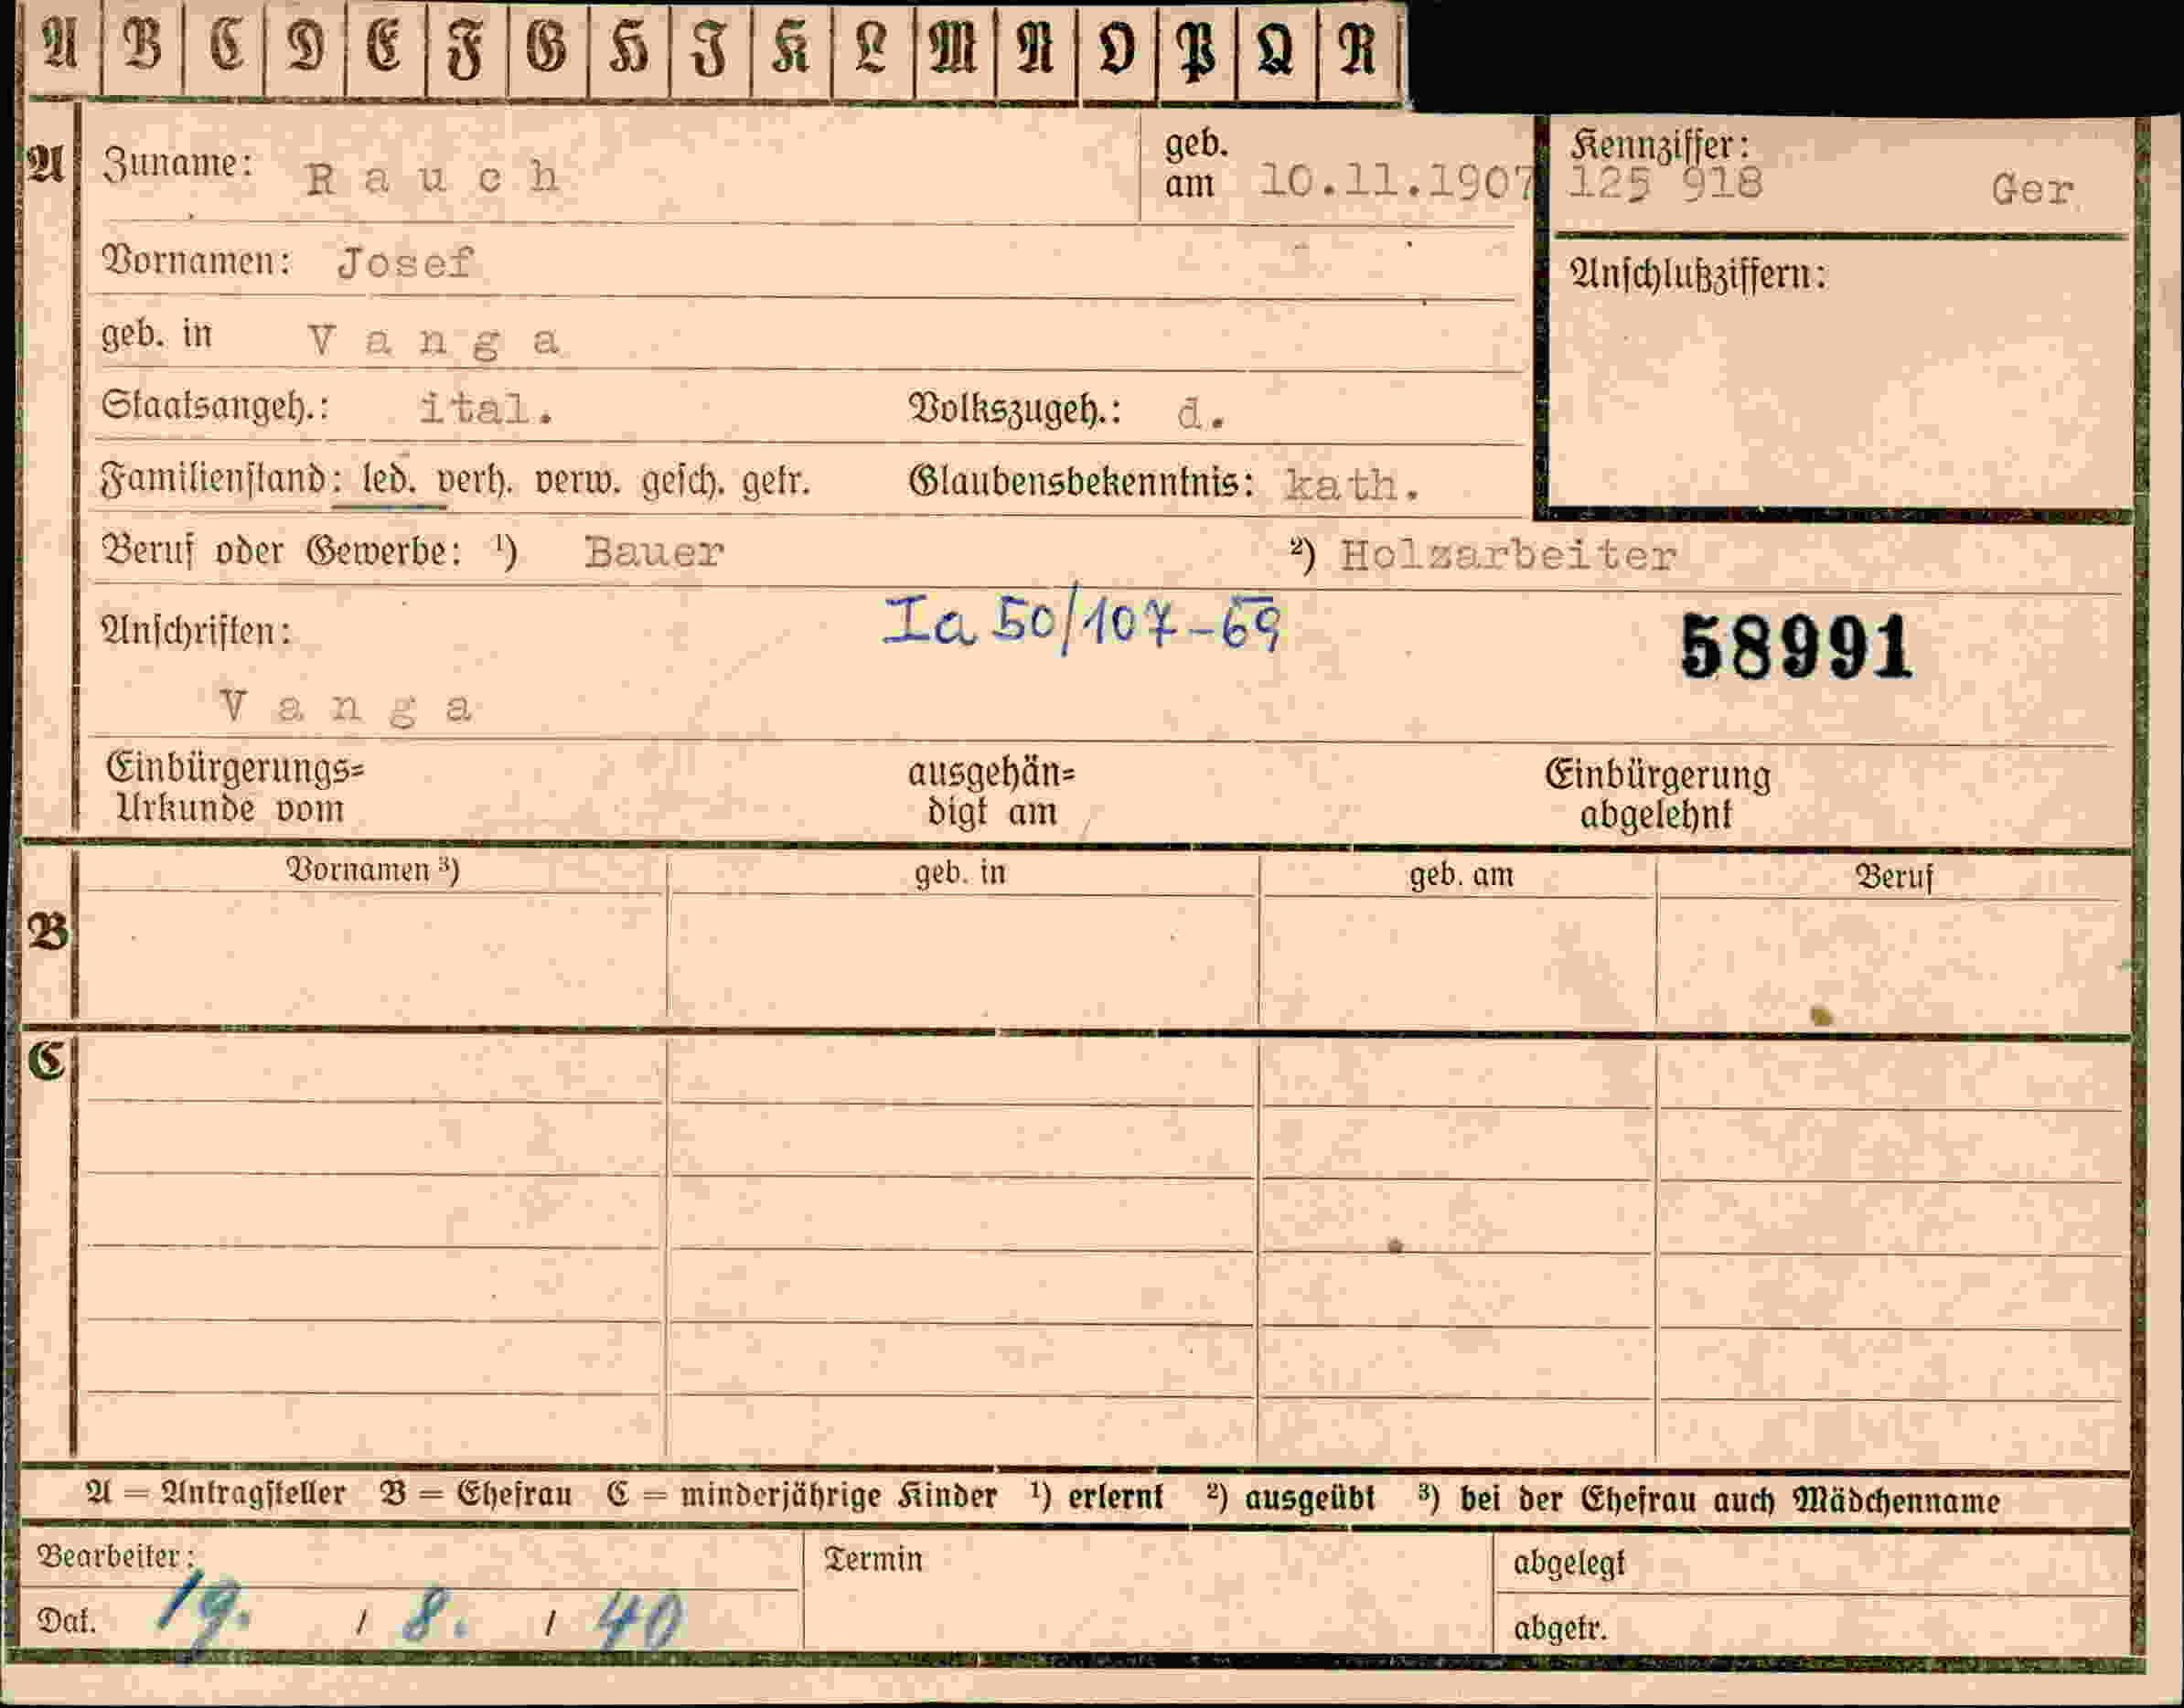 A B C D E F G H J K L M N O P Q R
A Zuname: Rauch geb. am 10.11.1907
Kennziffer: 125 918 Ger
Vornamen: Josef
Anschlußziffern:
geb. in Vanga
Staatsangeh.: ital. Volkszugeh.: d.
Familienstand: led. verh. verw. gesch. getr. Glaubensbekenntnis: kath.
Beruf oder Gewerbe: ¹) Bauer ²) Holzarbeiter
Anschriften: Ia 50/107-69 58991
Vanga
Einbürgerungs= ausgehän= Einbürgerung
Urkunde vom digt am abgelehnt
Vornamen ³) geb. in geb. am Beruf
B
C
A = Antragsteller B = Ehefrau C = minderjährige Kinder ¹) erlernt ²) ausgeübt ³) bei der Ehefrau auch Mädchenname
Bearbeiter: Termin abgelegt
Dat. 19. / 8. / 40 abgetr.